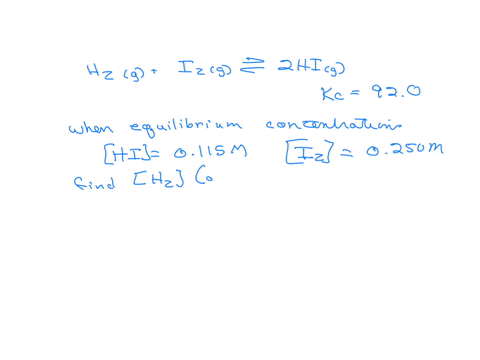 H2 (g) + I2 (g) ⇌ 2HI (g)
Kc = 92.0
when equilibrium concentrations
[HI] = 0.115 M [I2] = 0.250 M
find [H2] (o